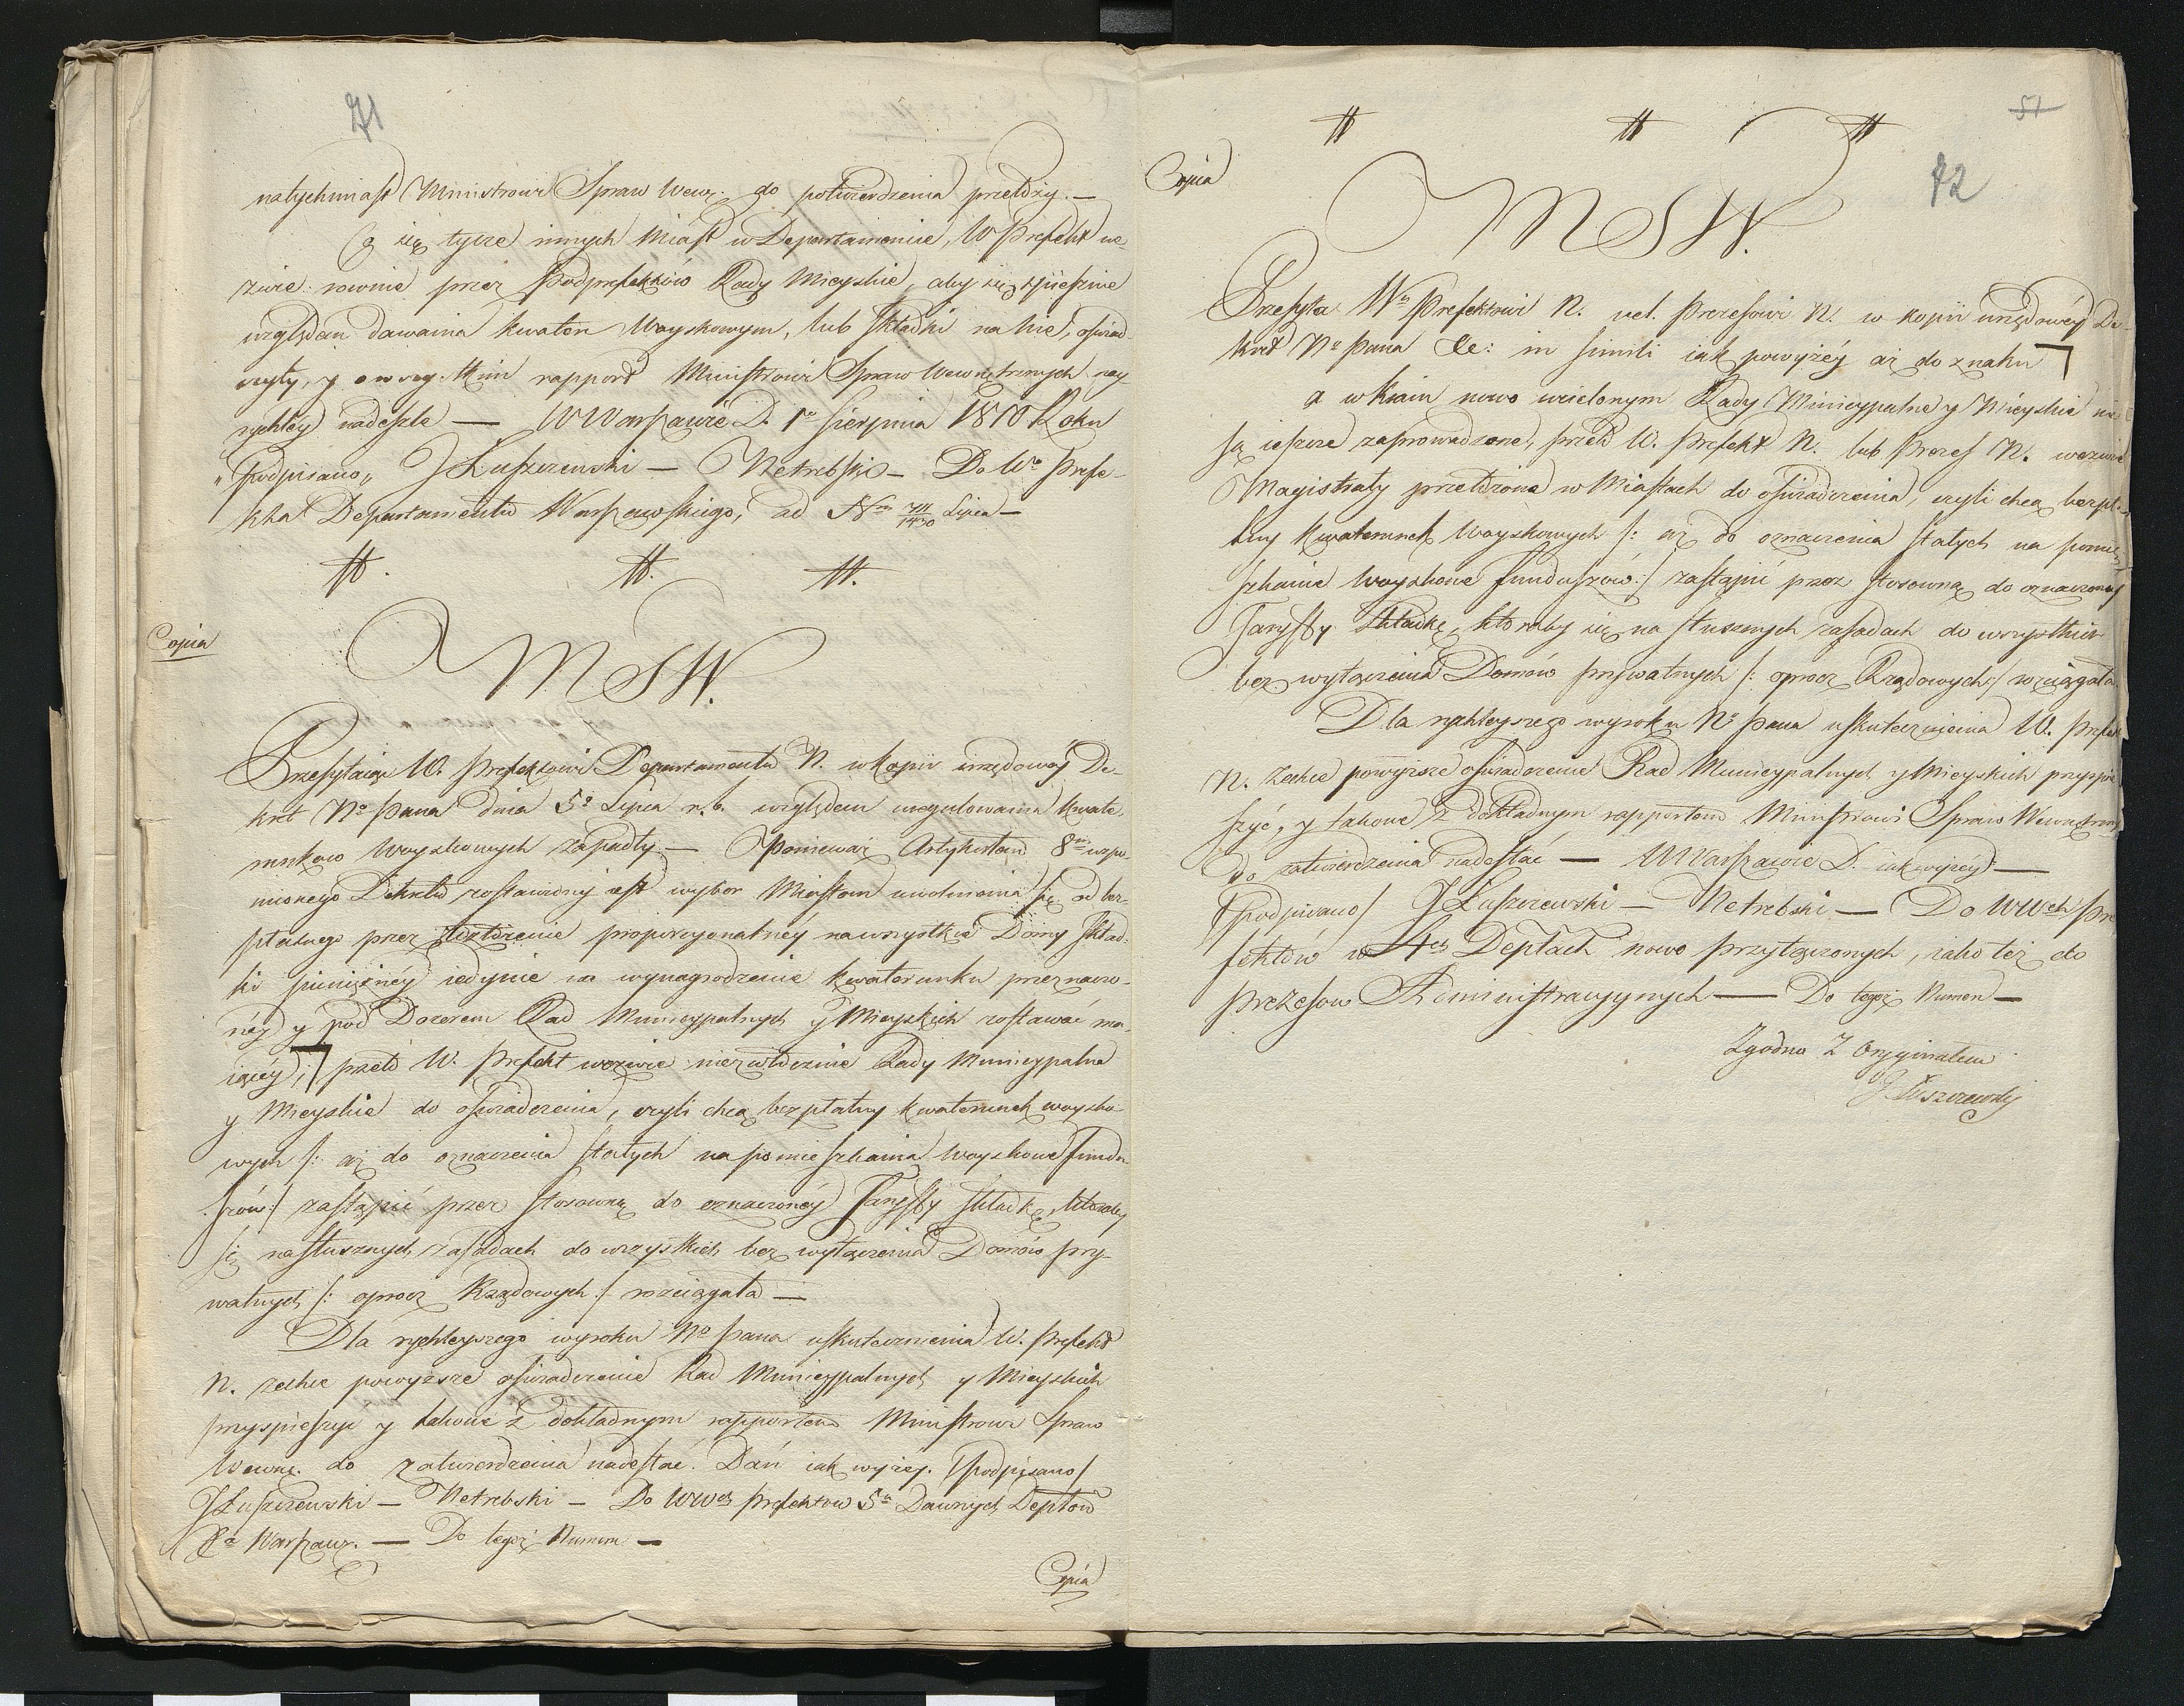 71
natychmiast Ministrowi Spraw Wewę. do potwierdzenia przełoży. —
Co się tycze innych Miast w Departamencie, W Prefekt we-
zwie rownie przez Podprefektów Rady Mieyskie, aby się spiesznie
względem dawania kwater Woyskowym, lub składki na nie, oświad
czyły, y o wszystkim rapport Ministrowi Spraw Wewnętrznych nay
rychley nadeszle — W Warszawie D. 1o Sierpnia 1810 Roku
"Podpisano" J Łuszczewski — Netrebski — Do Wo Prefe-
kta Departamentu Warszawskiego, ad Num Lipca —
#. #. #.
Copia
M S W.
Przesyłaiąc W. Prefektowi Departamentu N. w kopii urzędowéy De-
kret No Pana dnia 5o Lipca r. b. względem uregulowania kwate-
runkow Woyskowych zapadły — Ponieważ Artykułem 8m wspo-
mionego Dekretu zostawiony iest wybor Miastom uwolnienia się od bez-
płatnego przez złożenie proporcyonalnéy na wszystkie Domy skład-
ki pieniężnéy iedynie na wynagrodzenie kwaterunku przeznaczo-
néy y pod Dozorem Rad Municypalnych y Mieyskich zostawać ma-
iącéy; ⌉ przeto W. Prefekt wezwie niezwłocznie Rady Municypalne
y Mieyskie do oświadczenia, czyli chcą bezpłatny kwaterunek woysko-
wych /: aż do oznaczenia stałych na pomieszkania Woyskowe fundu-
szów :/ zastąpić przez stosowną do oznaczonéy Taryffy składkę, któraby
się na słusznych zasadach do wszystkich bez wyłączenia Domów pry-
watnych /: oprocz Rządowych :/ rozciągała —
Dla rychleyszego wyroku No Pana uskutecznienia W. Prefekt
N. zechce powyższe oświadczenie Rad Municypalnych y Mieyskich
przyspieszyć y takowe z dokładnym rapportem Ministrowi Spraw
Wewnę. do zatwierdzenia nadesłać. Dań iak wyżéy. /podpisano/
J Łuszczewski — Netrebski — Do WWch Prefektow 5u Dawnych Deptow
Xa Warszaw. — Do tegoż Numeru —
Copia
51
72
# # #
Copia
M S W.
Przesyła Wu Prefektowi N. vel. Prezesowi N. w kopii urzędowéy De-
kret No Pana &c: in simili iak powyżéy aż do znaku ⌉
a w kraiu nowo wcielonym Rady Municypalne y Mieyskie nie
są ieszcze zaprowadzone, przeto W. Prefekt N. lub Prezes N. wezwie
Magistraty przełożone w Miastach do oświadczenia, czyli chcą bezpła-
tny kwaterunek Woyskowych /: aż do oznaczenia stałych na pomie-
szkanie Woyskowe funduszow :/ zastąpić przez stosowną do oznaczonéy
Taryffy składkę, któraby się na słusznych zasadach do wszystkich
bez wyłączenia Domów prywatnych /: oprocz Rządowych :/ rozciągała.
Dla rychleyszego wyroku No Pana uskutecznienia W. Prefekt
N. zechce powyższe oświadczenie Rad Municypalnych y Mieyskich przyspie
szyć, y takowe z dokładnym rapportem Ministrowi Spraw Wewnętrzny
do zatwierdzenia nadesłać — W Warszawie D. iak wyżéy —
/podpisano/ J Łuszczewski — Netrebski — Do WWch Pre
fektów w 4ch Deptach nowo przyłączonych, iako też do
Prezesow Administracyynych — Do tegoż Numeru —
Zgodno z Oryginałem
J Łuszczewski